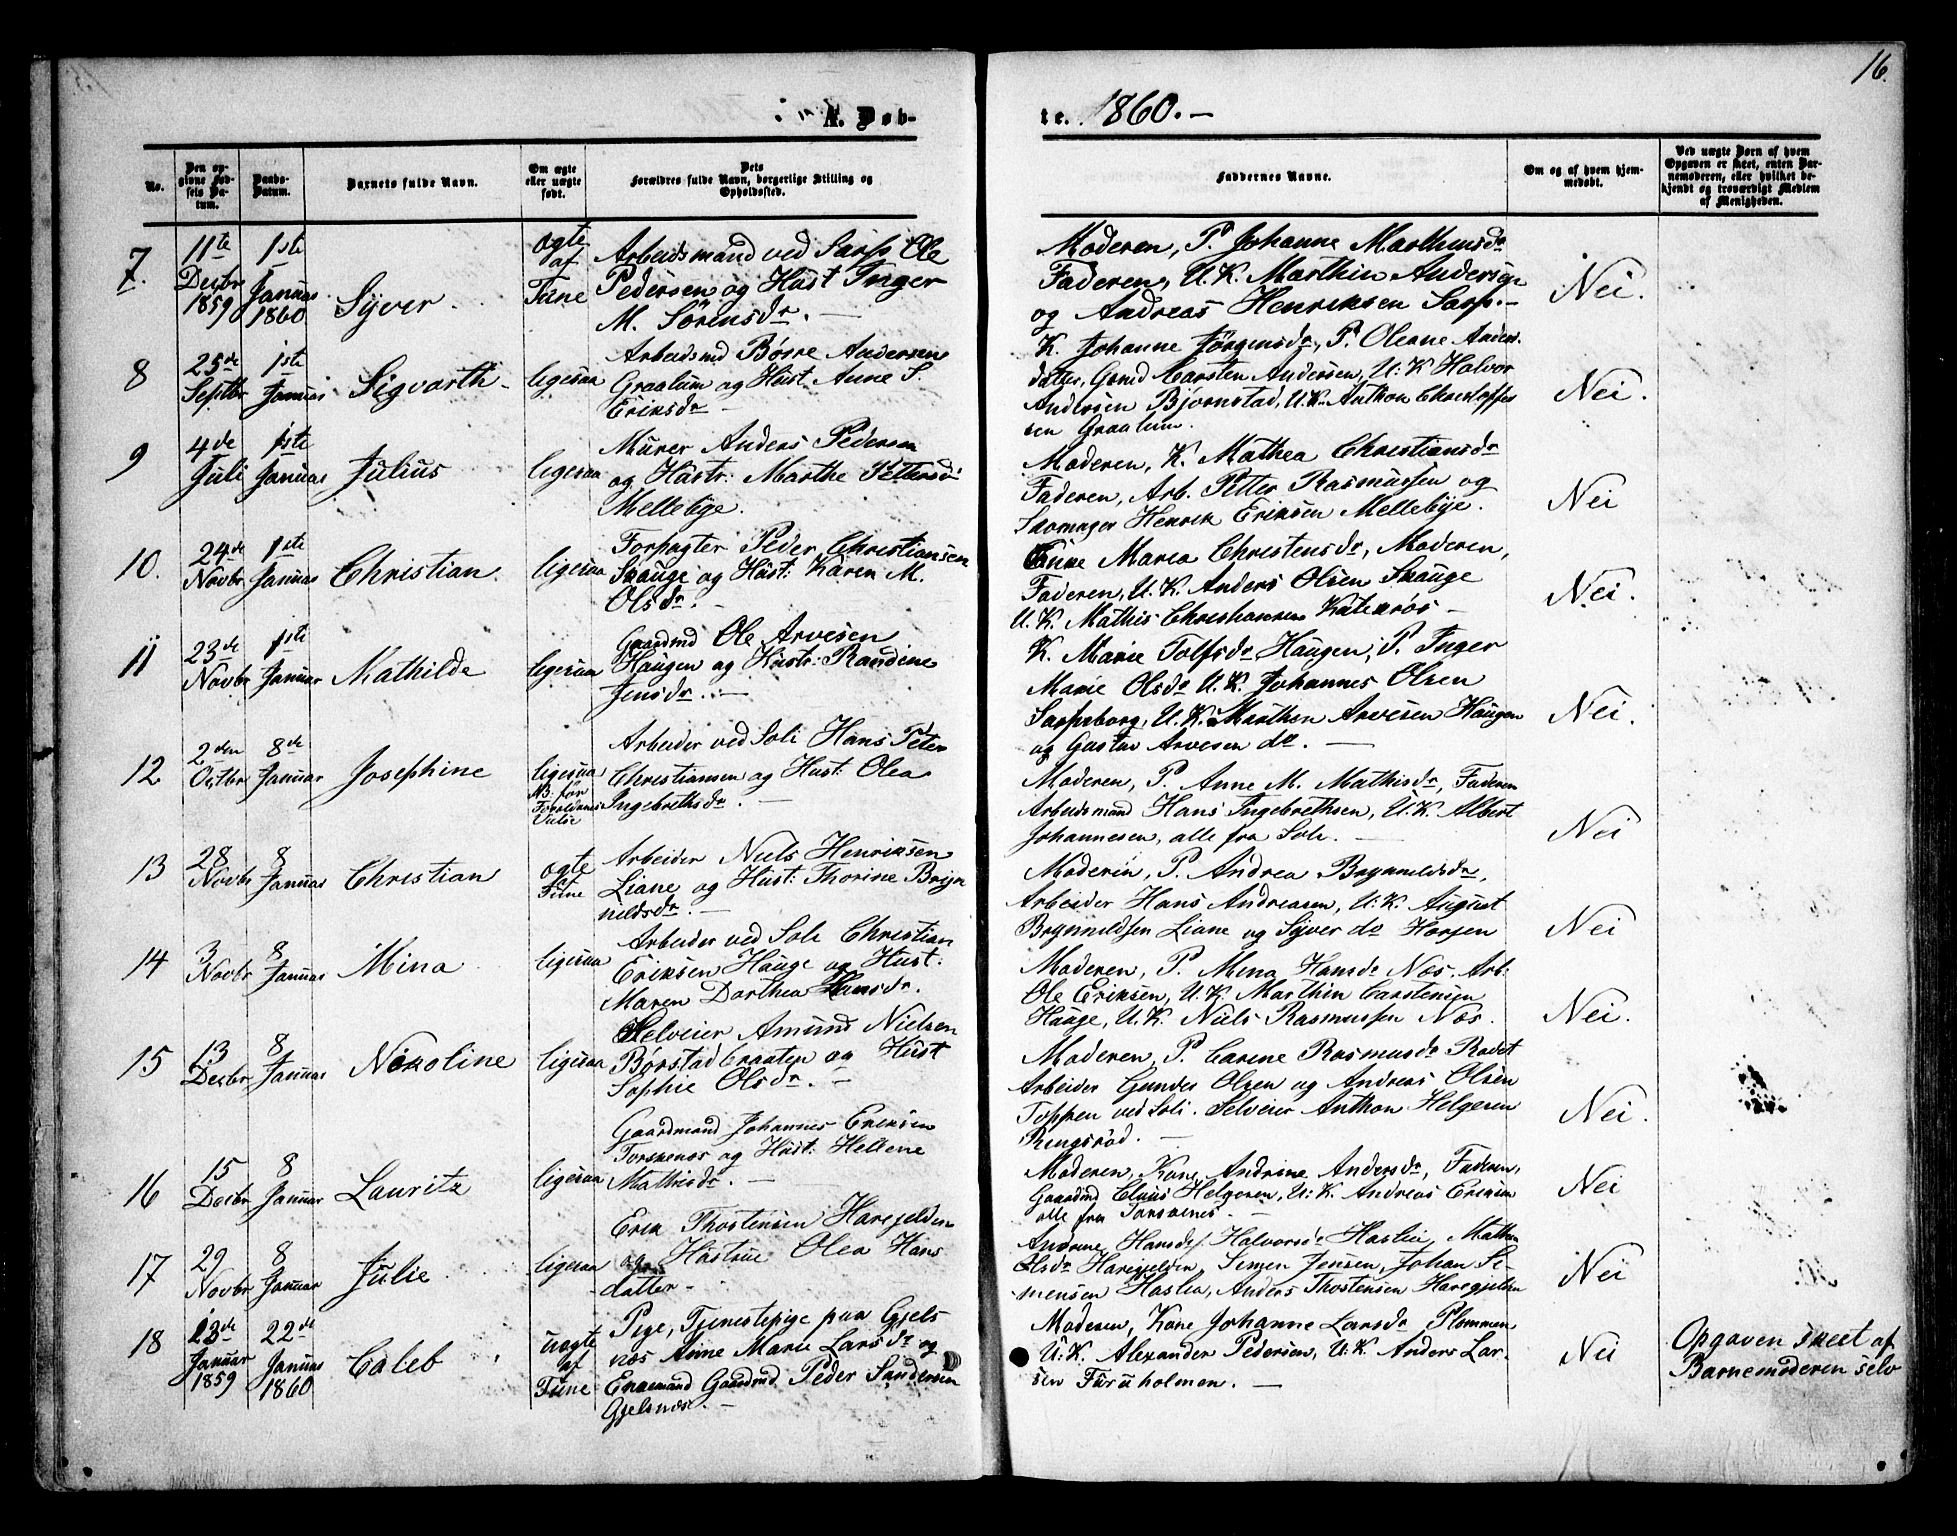 16.
A. Døb-
te. 1860.-
No.
Den op-
givne Fød-
sels Da-
tum.
Daabs-
Datum.
Barnets fulde Navn.
Om ægte
eller uægte
født.
Dets
Forældres fulde Navn, borgerlige Stilling og
Opholdssted.
Faddernes Navne.
Om og af hvem hjem-
medøbt.
Ved uægte Børn af hvem
Opgaven er skeet, enten Bar-
nemoderen, eller hvilket be-
kjendt og troværdigt Medlem
af Menigheden.
7.
11te
Decbr
1859
1ste
Januar
1860
Syver
ægte
af
Tune
Arbeidsmand ved Sarp Ole
Pedersen og Hust Inger
M. Sörensdr. -
Moderen, P. Johanne Marthinsdr
Faderen, U.K. Marthin Andersen
og Andreas Henriksen Sarp.-
Nei.
8
25de
Septbr
1ste
Januar
Sigvarth
ligesaa
Arbeidsmd Börre Andersen
Graalum og Hust. Anne S.
Eriksdr -
K. Johanne Jörgensdr, P. Oleane Anders-
datter, Grmd Carsten Andersen, U.K Halvor
Andersen Björnstad, U.K. Anthon Christoffer
sen Graalum.
Nei.
9
4de
Juli
1ste
Januar
Julius
ligesaa
Murer Anders Pedersen
og Hustr: Marthe Pettersd
Mellebye.
Moderen, K. Mathea Christiansdr
Faderen, Arb. Petter Rasmussen og
Skomager Henrik Eriksen Mellebye.
Nei
10.
24de
Novbr
1ste
Januar
Christian.
ligesaa
Forpagter Peder Christiansen
Skauge og Hust: Karen M.
Olsdr.-
Enke Maria Christensdr, Moderen,
Faderen, U.K. Anders Olsen Skauge
U.K. Mathis Christiansen Katerös -
Nei.
11
23de
Novbr
1ste
Januar
Mathilde
ligesaa
Gaardmd Ole Arvesen
Haugen og Hustr: Randine
Jensdr.-
K. Marie Tolfsdr Haugen, P. Inger
Marie Olsdr U.K. Johannes Olsen
Sarpsborg, U.K. Marthin Arvesen Haugen
og Gustav Arvesen do. -
Nei.
12
2den
Octbr
8de
Januar
Josephine
ligesaa
NB: før
Forældrenes
Vielse
Arbeider ved Soli Hans Peter
Christiansen og Hust: Olea
Ingebrethsdr. -
Moderen, P. Anne M. Mathisdr, Faderen
Arbeidsmand Hans Ingebrethsen, U.K. Albert
Johannesen, alle fra Soli. -
Nei
13
28
Novbr
8
Januar
Christian
ægte
af
Tune
Arbeider Niels Henriksen
Liane og Hust: Thorine Bryn
nildsdr. -
Moderen, P. Andrea Brynnildsdr,
Arbeider Hans Andreasen, U.K. August
Brynnildsen Liane og Syver do Horsen
Nei
14
3
Novbr
8
Januar
Mina
ligesaa
Arbeider ved Soli Christian
Eriksen Hauge og Hust:
Maren Dorthea Hansdr.
Moderen, P. Mina Hansdr Næs. Arb:
Ole Eriksen, U.K. Marthin Carstensen
Hauge, U.K. Niels Rasmussen Næs.
Nei.
15
13
Decbr
8
Januar
Nikoline
ligesaa
Selveier Amund Nielsen
Börstad Braaten og Hust
Sophie Olsdr. -
Moderen, P. Carine Rasmusdr Rodet
Arbeider Gunder Olsen og Andreas Olsen
Toppen ved Soli. Selveier Anthon Helgesen
Ringsröd. -
Nei.
16
15
Decbr
8
Januar
Lauritz
ligesaa
Gaardmand Johannes Eriksen
Torskenæs og Hust: Hellene
Mathisdr. -
Moderen, Kone Andrine Andersdr, Faderen,
Gaardmd Claus Helgesen, U.K. Andreas Eriksen
alle fra Torskenes. -
Nei
17
29
Novbr
8
Januar
Julie
ligesaa
Erik Thostensen Haregjelden
og Hustrue Olea Hans
datter -
Andrine Halvorsdr Haslie, Mathea
Olsdr Haregjelden, Simen Jensen, Johan Si-
mensen Haslea, Anders Thostensen Haregjelden
Nei
18
23de
Januar
1859
22de
Januar
1860
Caleb
uægte
af
Tune
Pige, Tjenestepige paa Gjels
næs Anne Marie Larsdr og
Enkemand Gaardmd Peder Sandersen
Gjelsnæs. -
Moderen, Kone Johanne Larsdr Plommen
U.K. Alexander Pedersen, U.K. Anders Lar-
sen Furuholmen. -
Nei
Opgaven skeet af
Barnemoderen selv